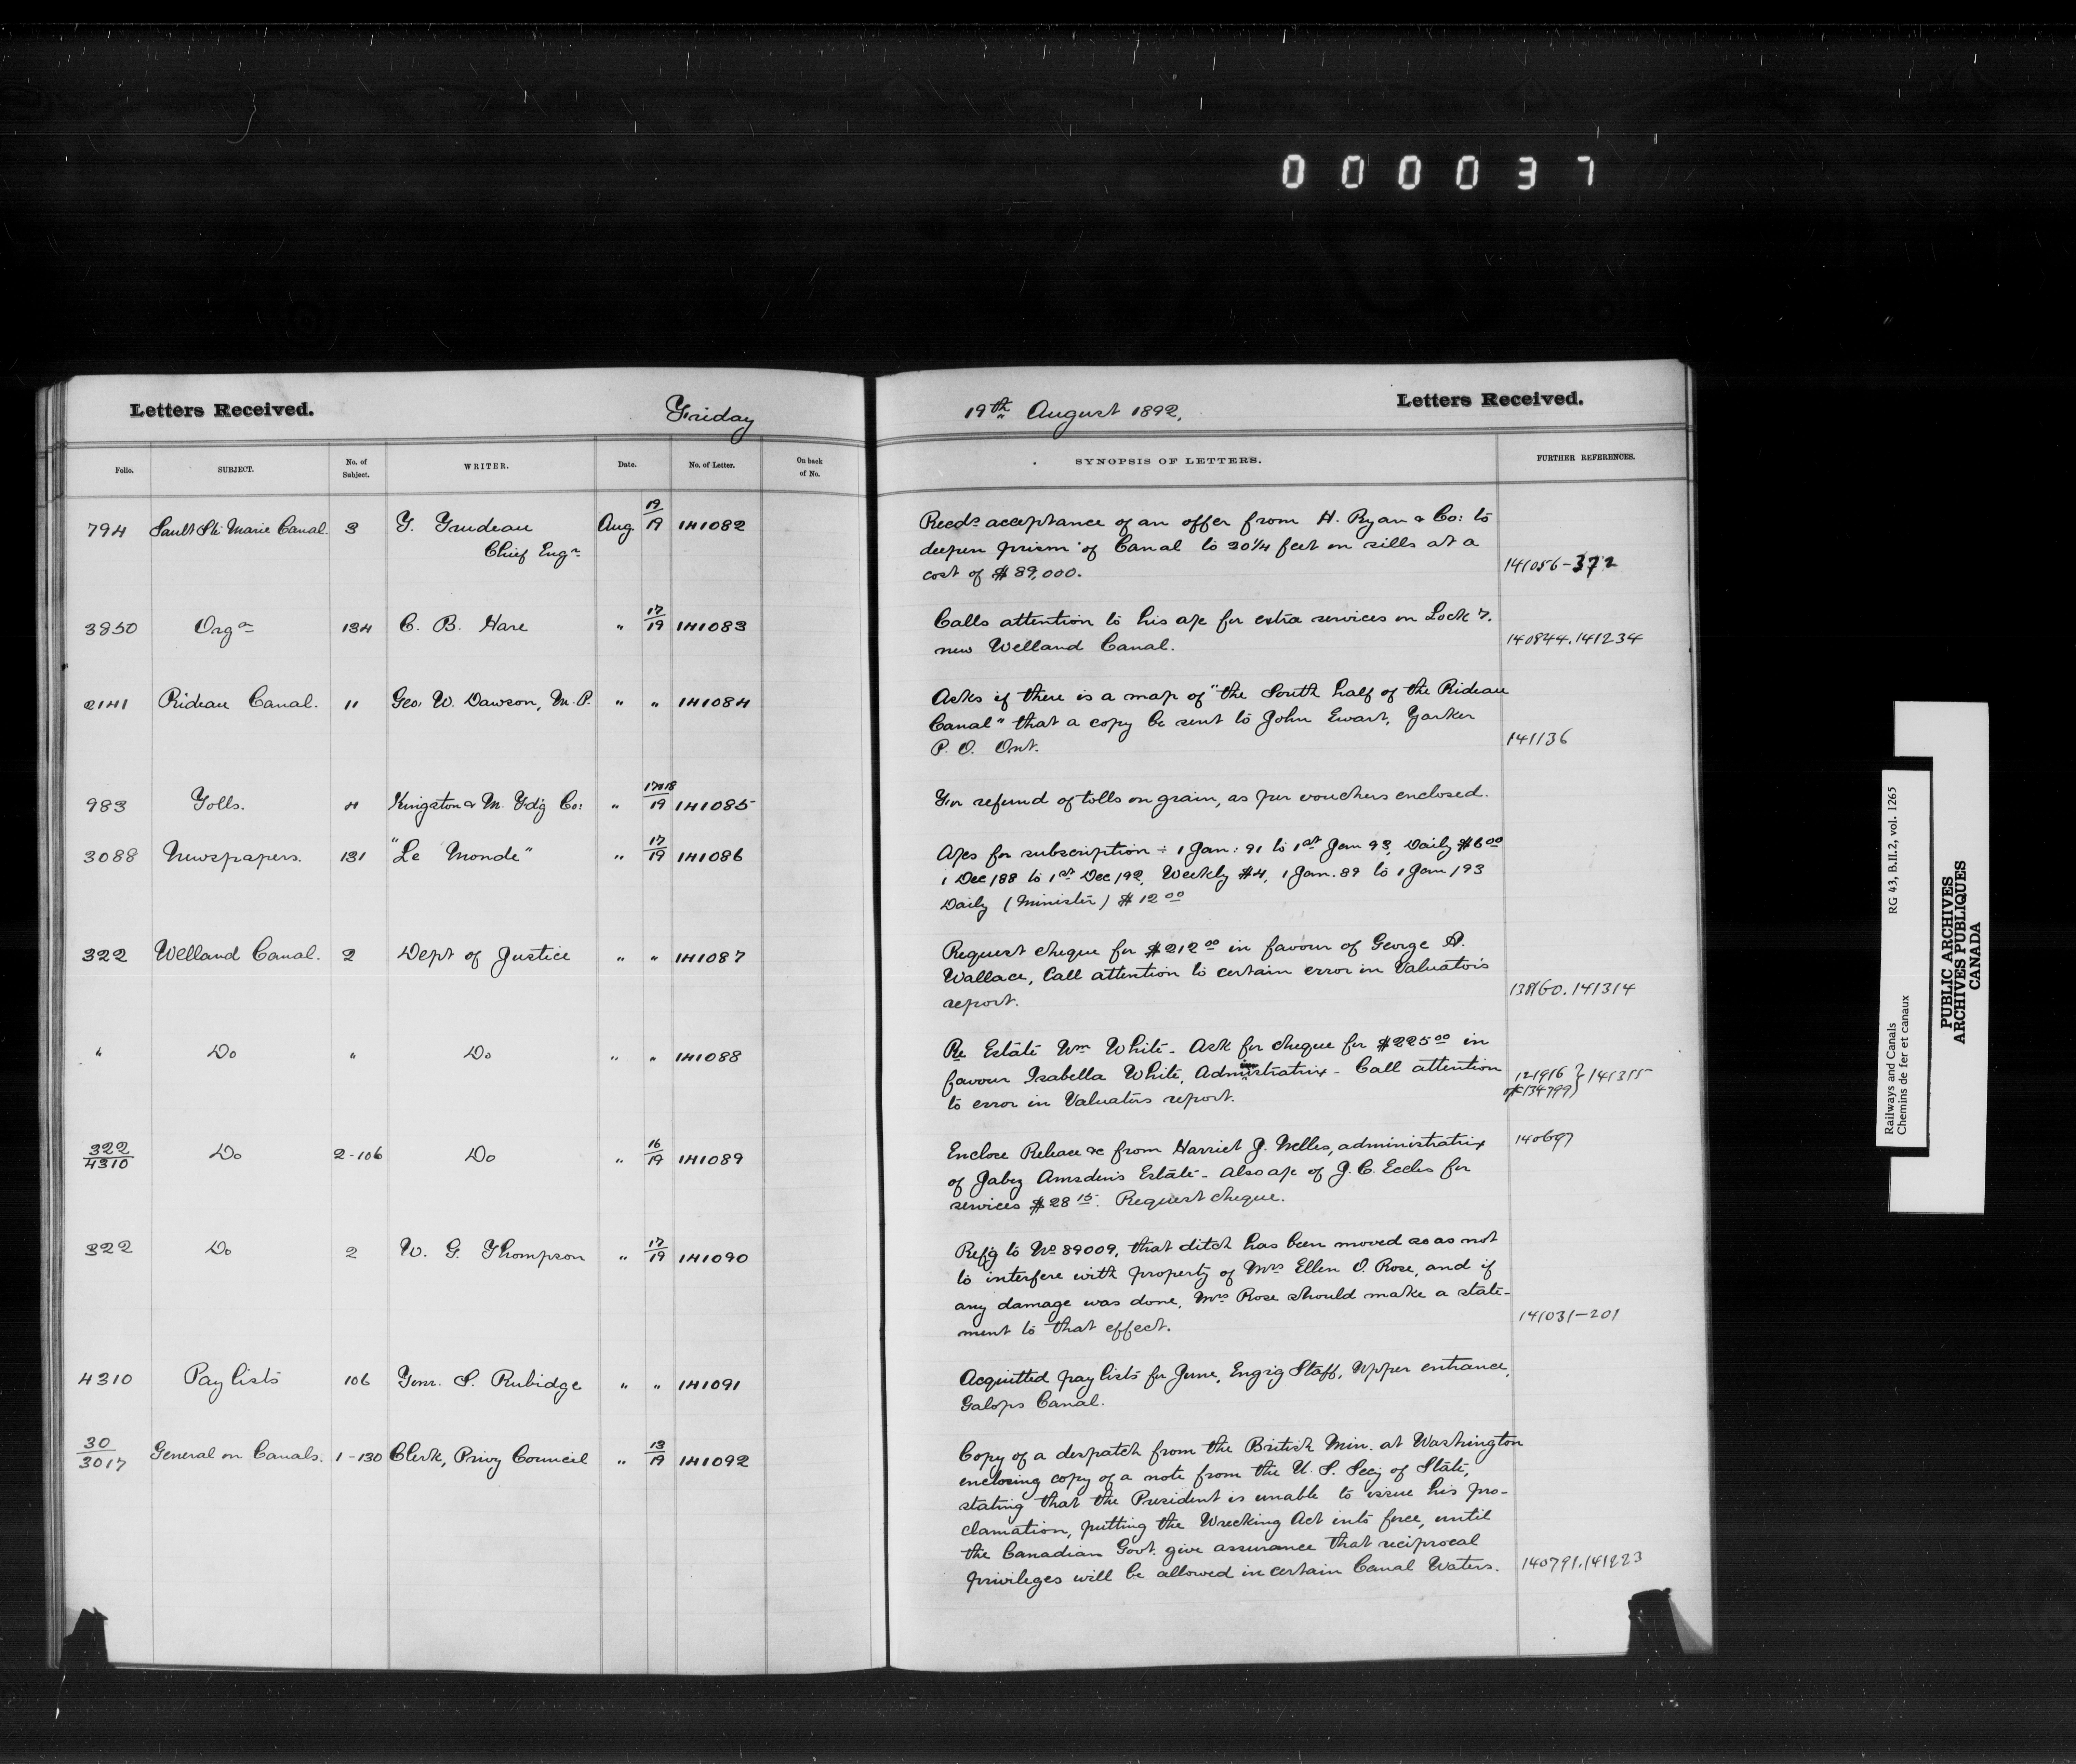 000037
Letters Received.
Friday
19th August 1892.
Letters Received.
Folio. SUBJECT. No. of Subject. WRITER. Date. No. of Letter. On back of No. SYNOPSIS OF LETTERS. FURTHER REFERENCES.
794 Sault Ste Marie Canal. 3 T. Trudeau Aug. 19/19 141082
Chief Engr.
Recds acceptance of an offer from H. Ryan & Co: to
deepen prism of Canal to 20 1/4 feet on sills at a
cost of $89,000.
141056-372
3850 Orgn 134 C. B. Hare " 17/19 141083
Calls attention to his a/c for extra services on Lock 7.
new Welland Canal.
140844.141234
2141 Rideau Canal. 11 Geo. W. Dawson, M.P. " " 141084
Asks if there is a map of "the South half of the Rideau
Canal" that a copy be sent to John Ewart, Yarker
P. O. Ont.
141136
983 Tolls. 4 Kingston & M. Fd'g Co: " 17&18/19 141085
For refund of tolls on grain, as per vouchers enclosed.
3088 Newspapers. 131 "Le Monde" " 17/19 141086
A/cs for subscription ÷ 1 Jan: 91 to 1st Jan 93, Daily $6 00
1 Dec/88 to 1st Dec/92, Weekly $4, 1 Jan. 89 to 1 Jan/93
Daily (Minister) $12 00
322 Welland Canal. 2 Dept of Justice " " 141087
Request cheque for $212 00 in favour of George A.
Wallace, Call attention to certain error in Valuators
report.
138160.141314
" Do " Do " " 141088
Re Estate Wm White - Ask for cheque for $225 00 in
favour Isabella White, Administratrix - Call attention
to error in Valuators report.
121916 } 141315
134799)
322/4310 Do 2-106 Do " 16/19 141089
Enclose Release &c from Harriet J. Nelles, administratrix
of Jabez Amsden's Estate - also a/c of J. C. Eccles for
services $28 15. Request cheque.
140697
322 Do 2 W. G. Thompson " 17/19 141090
Ref'g to No 89009, that ditch has been moved so as not
to interfere with property of Mrs Ellen O. Rose, and if
any damage was done, Mrs Rose should make a state-
ment to that effect.
141031-201
4310 Pay lists 106 S. Rubidge " " 141091
Acquitted pay lists for June, Eng'g Staff, Upper entrance,
Galops Canal.
30/3017 General on Canals. 1-130 Clerk, Privy Council " 13/19 141092
Copy of a despatch from the British Min. at Washington
enclosing copy of a note from the U. S. Secy of State,
stating that the President is unable to issue his pro-
clamation, putting the Wrecking Act into force, until
the Canadian Govt. give assurance that reciprocal
privileges will be allowed in certain Canal Waters.
140791.141223
Railways and Canals RG 43, B.II.2, vol. 1265
Chemins de fer et canaux
PUBLIC ARCHIVES
ARCHIVES PUBLIQUES
CANADA